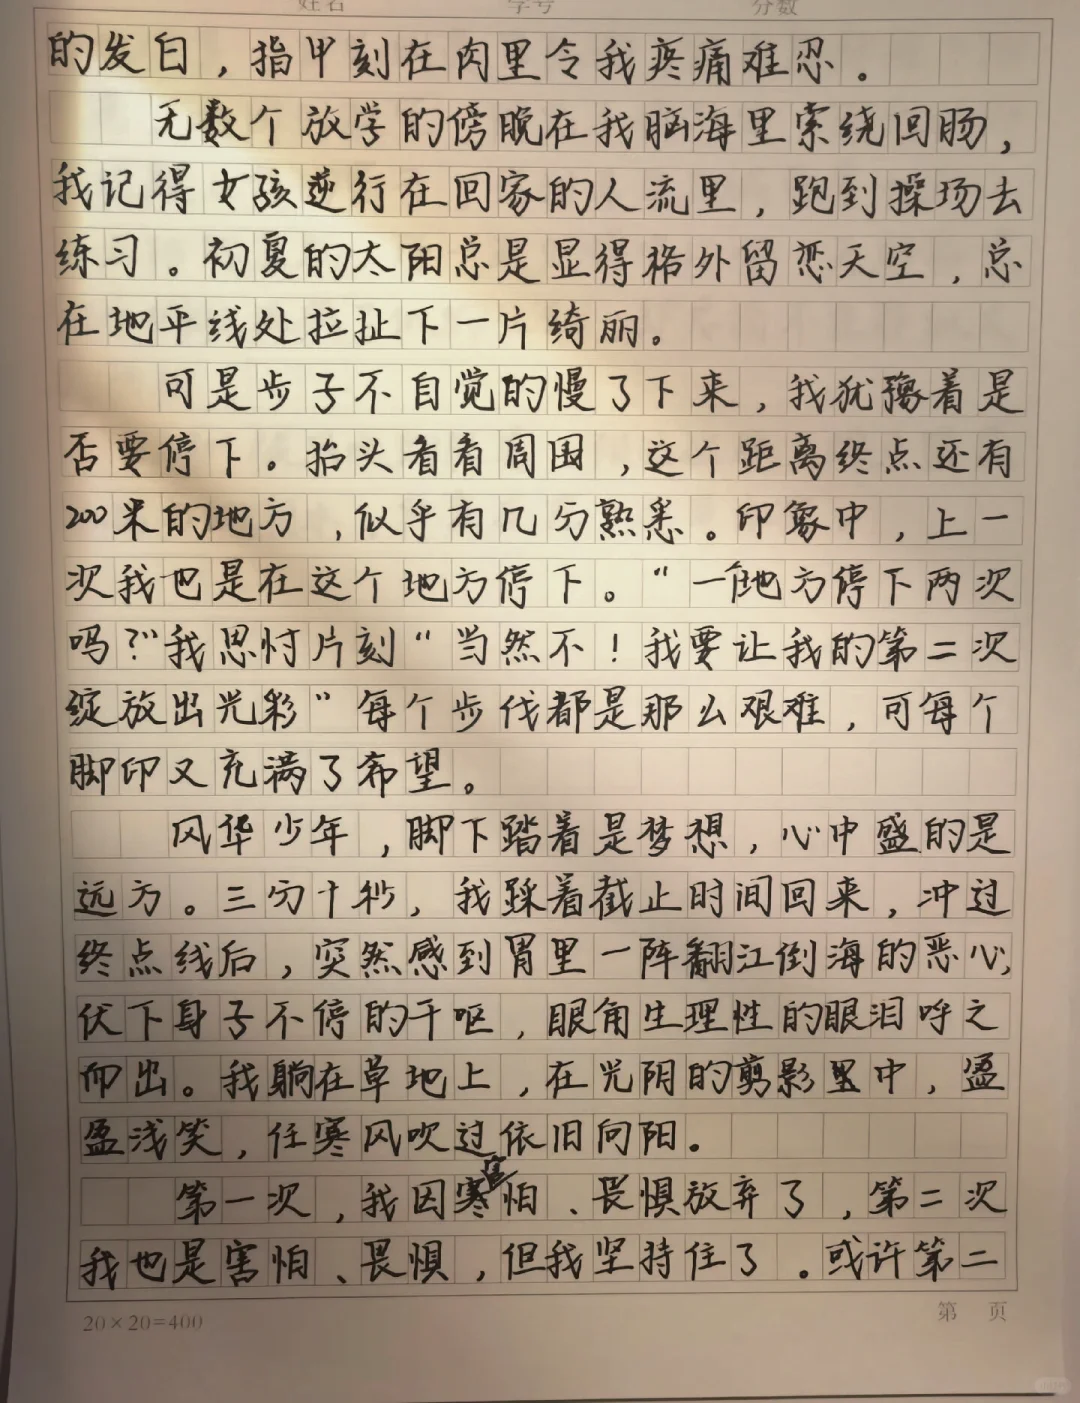 姓名 学号 分数
的发白，指甲刻在肉里令我疼痛难忍。
无数个放学的傍晚在我脑海里索绕回肠，
我记得女孩逆行在回家的人流里，跑到操场去
练习。初夏的太阳总是显得格外留恋天空，总
在地平线处拉扯下一片绮丽。
可是步子不自觉的慢了下来，我犹豫着是
否要停下。抬头看看周围，这个距离终点还有
200米的地方，似乎有几分熟悉。印象中，上一
次我也是在这个地方停下。“一个地方停下两次
吗？”我思忖片刻“当然不！我要让我的第二次
绽放出光彩”每个步伐都是那么艰难，可每个
脚印又充满了希望。
风华少年，脚下踏着是梦想，心中盛的是
远方。三分十秒，我踩着截止时间回来，冲过
终点线后，突然感到胃里一阵翻江倒海的恶心，
伏下身子不停的干呕，眼角生理性的眼泪呼之
而出。我躺在草地上，在光阴的剪影里中，盈
盈浅笑，任寒风吹过依旧向阳。
第一次，我因害怕、畏惧放弃了，第二次
我也是害怕、畏惧，但我坚持住了。或许第二
20×20=400 第 页